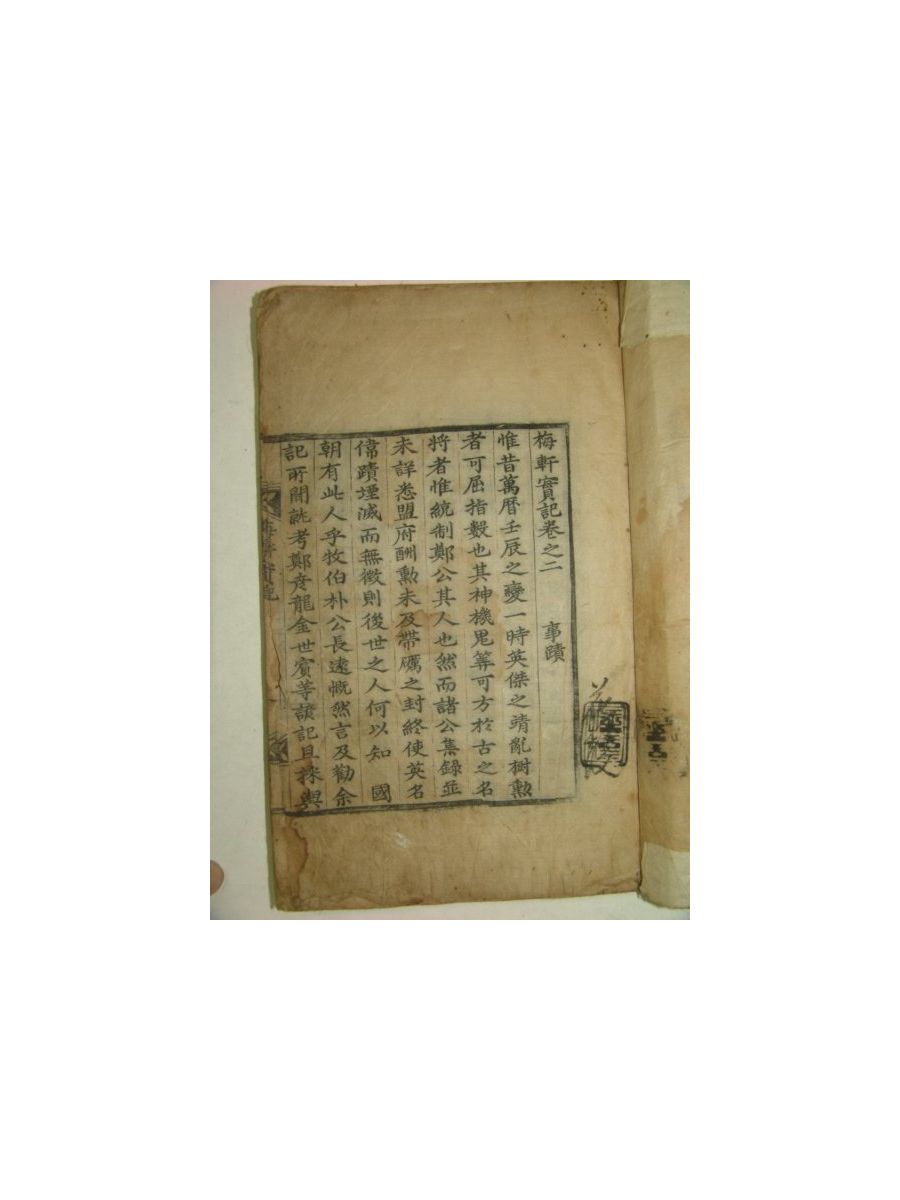 梅軒實記卷之二
事蹟
惟昔萬曆壬辰之變一時英傑之靖亂樹勲
者可屈指數也其神機鬼籌可方於古之名
将者惟統制鄭公其人也然而諸公集錄並
未詳悉盟府酬勲未及帶礪之封終使英名
偉蹟堙滅而無徵則後世之人何以知 國
朝有此人乎牧伯朴公長遠慨然言及勸余
記所聞詵考鄭彦龍金世賓等諺記且採輿